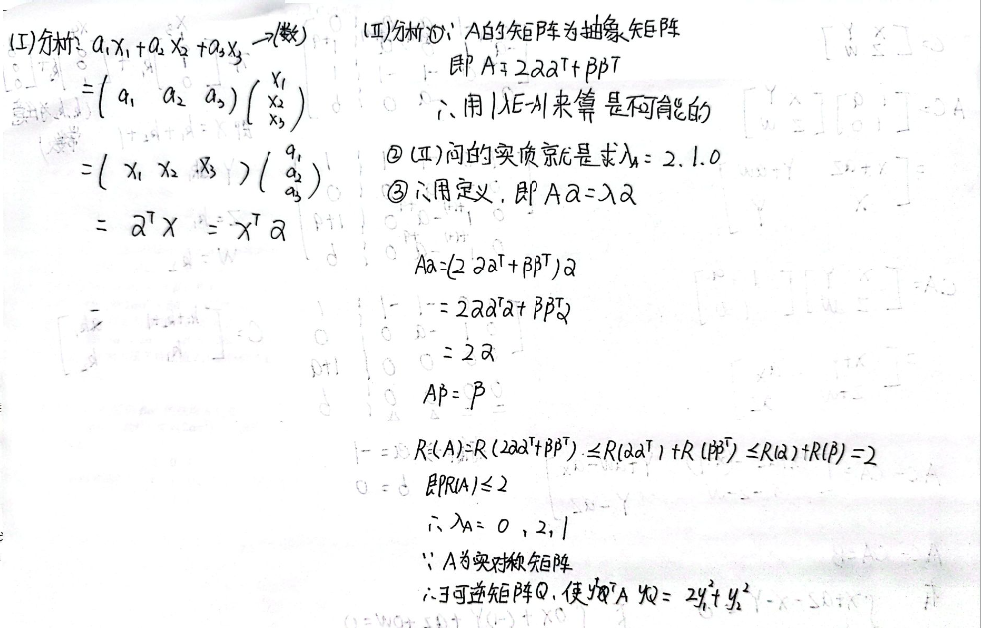 (I)分析: a₁x₁+a₂x₂+a₃x₃ →(数)
=(a₁ a₂ a₃)(x₁ x₂ x₃)
=(x₁ x₂ x₃)(a₁ a₂ a₃)
= αᵀx = xᵀα
(II)分析①∵ A的矩阵为抽象矩阵
即 A=2ααᵀ+ββᵀ
∴用|λE-A|来算是不可能的
②(II)问的实质就是求λA=2.1.0
③∴用定义,即Aα=λα
Aα=(2ααᵀ+ββᵀ)α
=2ααᵀα+ββᵀα
=2α
Aβ=β
R(A)=R(2ααᵀ+ββᵀ)≤R(ααᵀ)+R(ββᵀ)≤R(α)+R(β)=2
即R(A)≤2
∴λA=0,2,1
∵A为实对称矩阵
∴∃可逆矩阵Q,使yᵀQᵀAyQ=2y₁²+y₂²